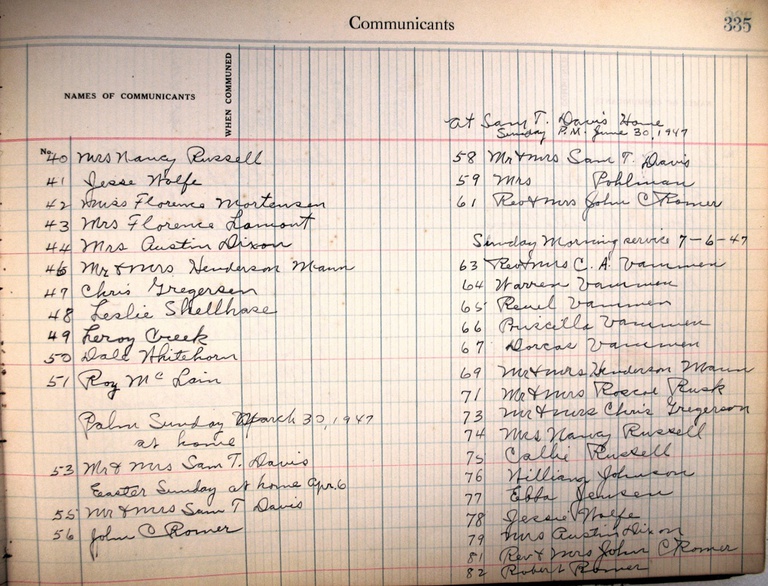 Communicants
335
NAMES OF COMMUNICANTS
WHEN COMMUNED
No.
40 Mrs Nancy Russell
41 Jesse Wolfe
42 Miss Florence Mortensen
43 Mrs Florence Lamont
44 Mrs Austin Dixon
46 Mr & Mrs Henderson Mann
47 Chris Gregersen
48 Leslie Shellhase
49 Leroy Creek
50 Dale Whitehorn
51 Roy Mc Lain
Palm Sunday March 30, 1947
at home
53 Mr & Mrs Sam T. Davis
Easter Sunday at home Apr. 6
55 Mr & Mrs Sam T Davis
56 John C Romer
At Sam T. Davis Home
Sunday P.M. June 30, 1947
58 Mr & Mrs Sam T. Davis
59 Mrs Pohlman
61 Rev & Mrs John C Romer
Sunday Morning service 7-6-47
63 Rev & Mrs C. A. Vammen
64 Warren Vammen
65 Reuel Vammen
66 Priscilla Vammen
67 Dorcas Vammen
69 Mr & Mrs Henderson Mann
71 Mr & Mrs Roscoe Rusk
73 Mr & Mrs Chris Gregerson
74 Mrs Nancy Russell
75 Callie Russell
76 William Johnson
77 Ebba Jensen
78 Jessie Wolfe
79 Mrs Austin Dixon
81 Rev & Mrs John C Romer
82 Robert Romer